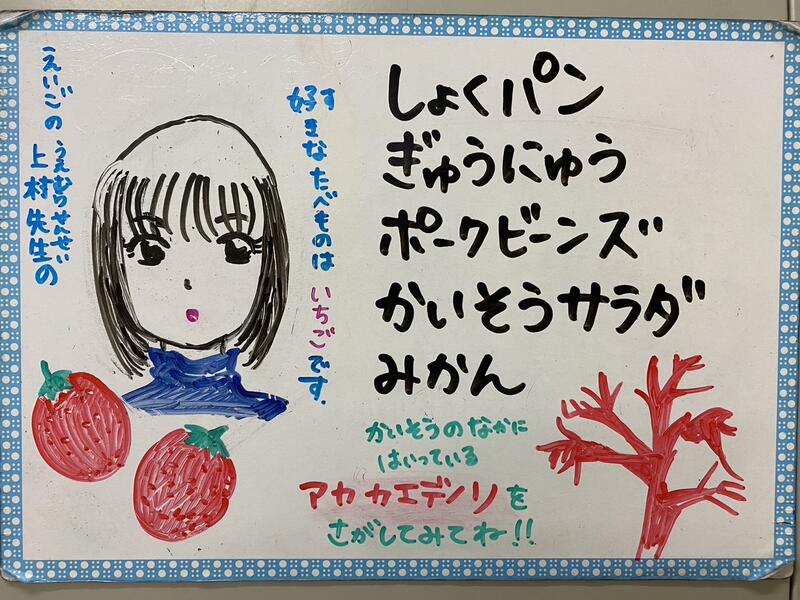 しょくパン
ぎゅうにゅう
ポークビーンズ
かいそうサラダ
みかん
かいそうのなかに
はいっている
アカカエデノリを
さがしてみてね!!
えいごの
うえむらせんせい
上村先生の
す
好きなたべものはいちごです.